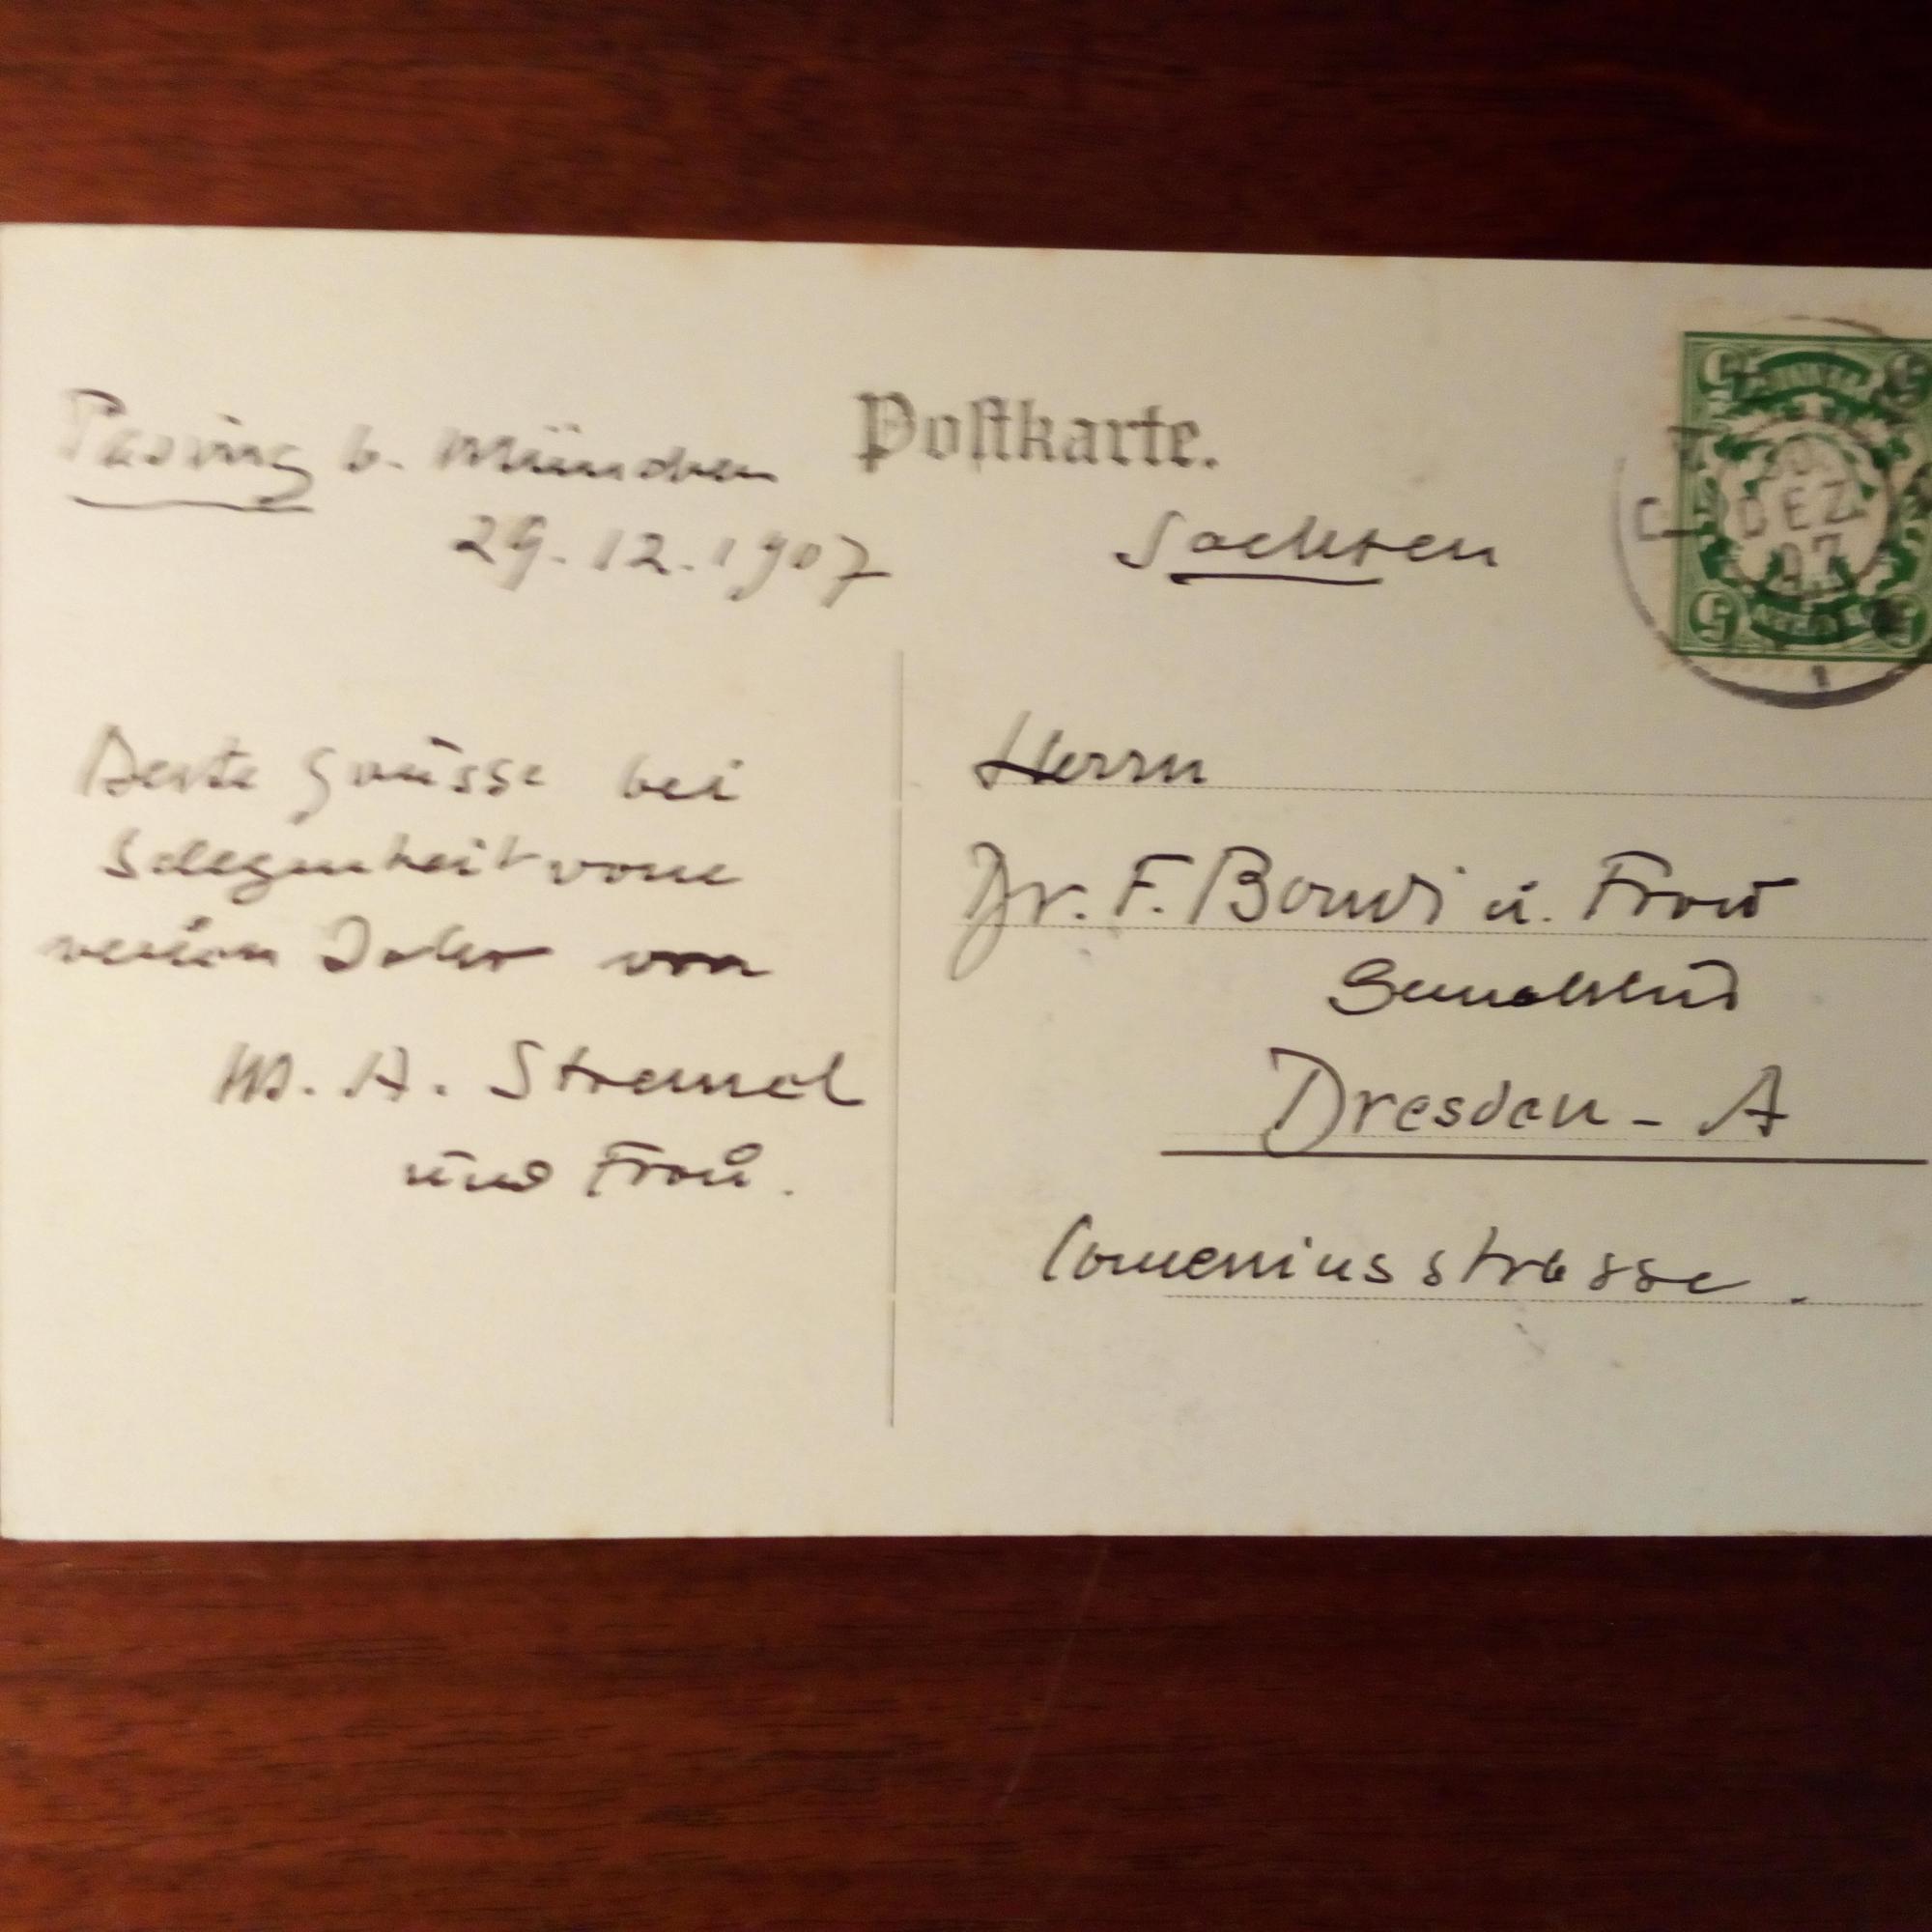 Pasing b. München
29.12.1907
Postkarte.
Sachsen
5
BAYERN
5
30.
DEZ
07
5
5
1
Beste Grüsse bei
Gelegenheit vom
neuen Jahr von
M. A. Stremel
und Frau.
Herrn
Dr. F. Bondi u. Frau
Gemahlin
Dresden - A
Comeniusstrasse.